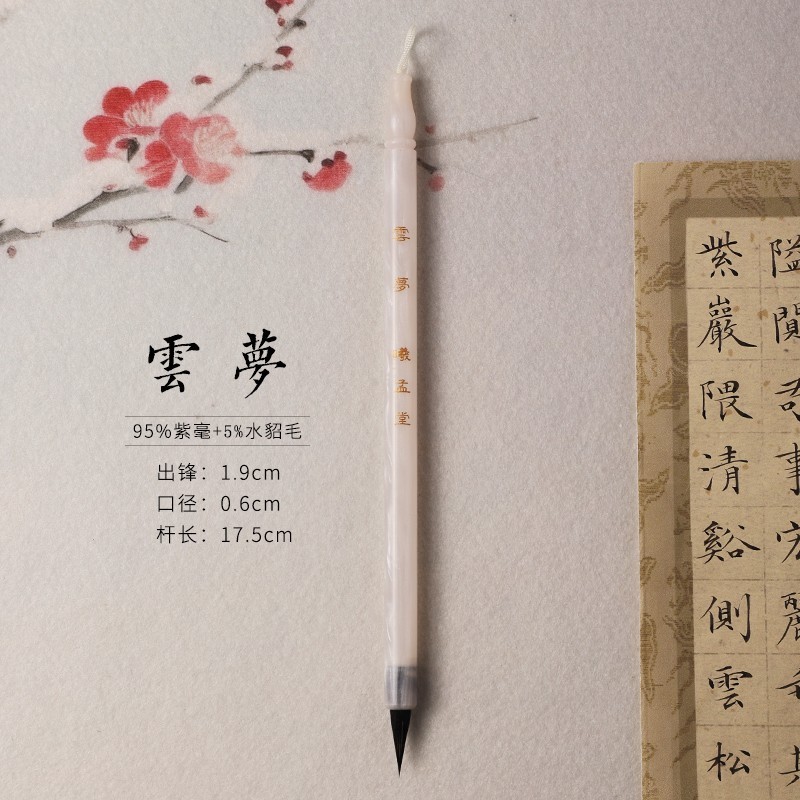 雲夢
95%紫毫+5%水貂毛
出锋：1.9cm
口径：0.6cm
杆长：17.5cm
雲夢 曦孟堂
紫巖隈清谿側雲松